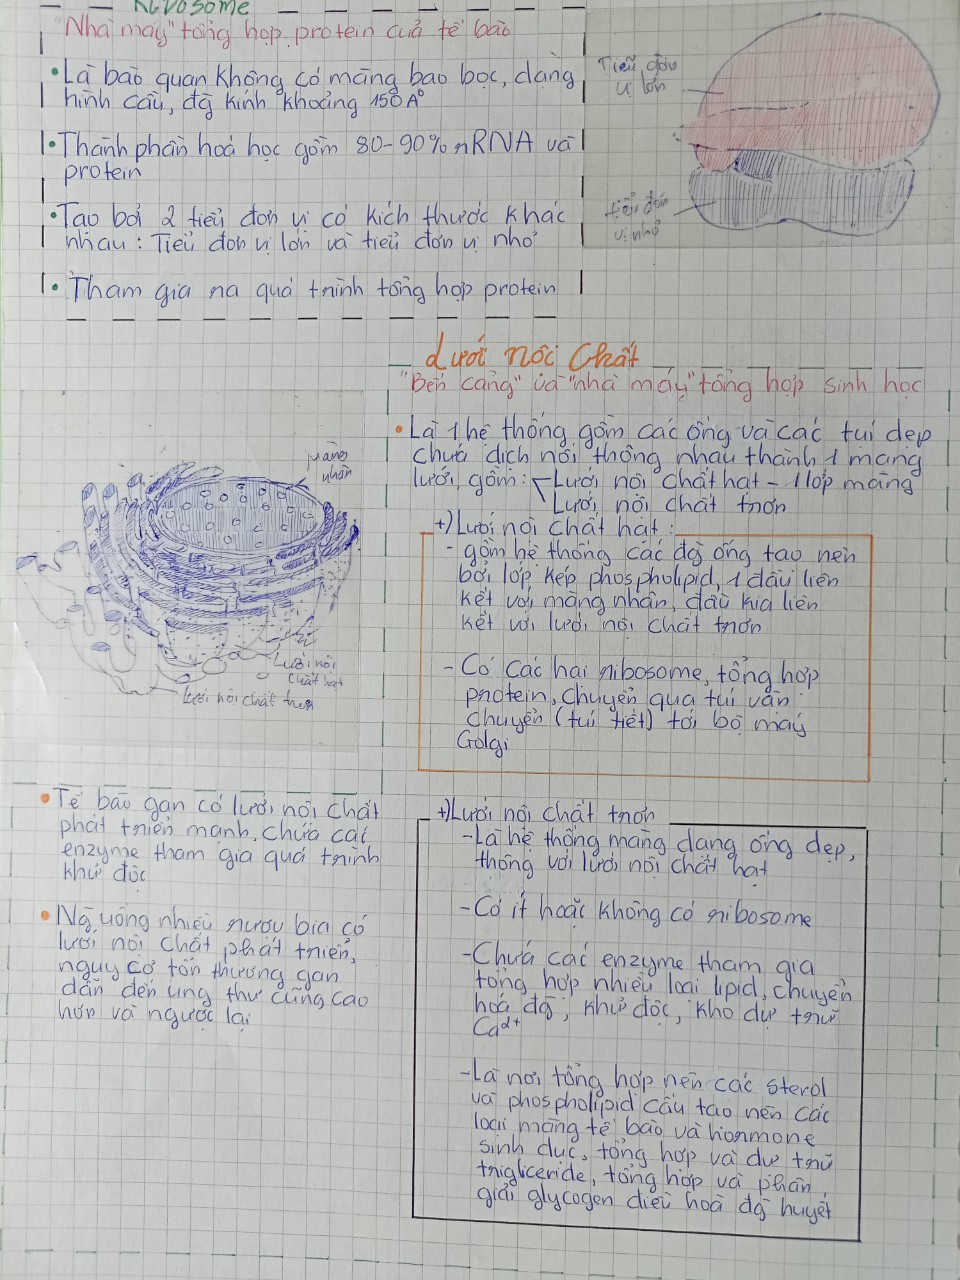 Ribosome
"Nhà máy" tổng hợp protein của tế bào
• Là bào quan không có màng bao bọc, dạng
hình cầu, đg kính khoảng 150 A°
• Thành phần hoá học gồm 80-90% rRNA và
protein
• Tạo bởi 2 tiểu đơn vị có kích thước khác
nhau: Tiểu đơn vị lớn và tiểu đơn vị nhỏ
• Tham gia na quá trình tổng hợp protein
Tiểu đơn
vị lớn
tiểu đơn
vị nhỏ
Lưới nội Chất
"Bến cảng" và "nhà máy" tổng hợp sinh học
• Là 1 hệ thống gồm các ống và các túi dẹp
chứa dịch nối thông nhau thành 1 mạng
lưới, gồm: Lưới nội chất hạt - 1 lớp màng
Lưới nội chất trơn
+) Lưới nội chất hạt:
- gồm hệ thống các đg ống tạo nên
bởi lớp kép phospholipid, 1 đầu liên
kết với màng nhân, đầu kia liên
kết với lưới nội chất trơn
- Có các hạt ribosome, tổng hợp
protein, chuyển qua túi vận
chuyển (túi tiết) tới bộ máy
Golgi
Màng
nhân
Lưới nội
chất hạt
Lưới nội chất trơn
• Tế bào gan có lưới nội chất
phát triển mạnh, chứa các
enzyme tham gia quá trình
khử độc
• Ng uống nhiều rượu bia có
lưới nội chất phát triển,
nguy cơ tổn thương gan
dẫn đến ung thư cũng cao
hơn và ngược lại
+) Lưới nội chất trơn
- Là hệ thống màng dạng ống dẹp,
thông với lưới nội chất hạt
- Có ít hoặc không có ribosome
- Chứa các enzyme tham gia
tổng hợp nhiều loại lipid, chuyển
hoá đg, khử độc, kho dự trữ
Ca2+
- Là nơi tổng hợp nên các sterol
và phospholipid cấu tạo nên các
loại màng tế bào và hormone
sinh dục, tổng hợp và dự trữ
trigliceride, tổng hợp và phân
giải glycogen điều hoà đg huyết